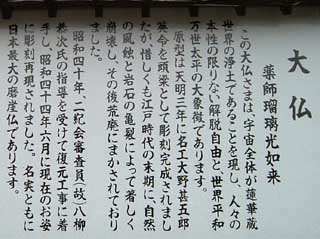 大仏
薬師瑠璃光如来
この大仏さまは、宇宙全体が蓮華蔵
世界の浄土であることを現し、人々の
本性の限りない解脱自由と、世界平和
万世太平の大象徴であります。
原型は天明三年に名工大野甚五郎
英令を頭梁として彫刻完成されまし
たが惜しくも江戸時代の末期に、自然
の風蝕と岩石の亀裂によって著しく
崩壊し、その後荒廃にまかされており
ました。
昭和四十年、二紀会審査員(故)八柳
恭次氏の指導を受けて復元工事に着
手し、昭和四十四年六月に現在のお姿
に彫刻再現されました。名実ともに
日本最大の磨崖仏であります。